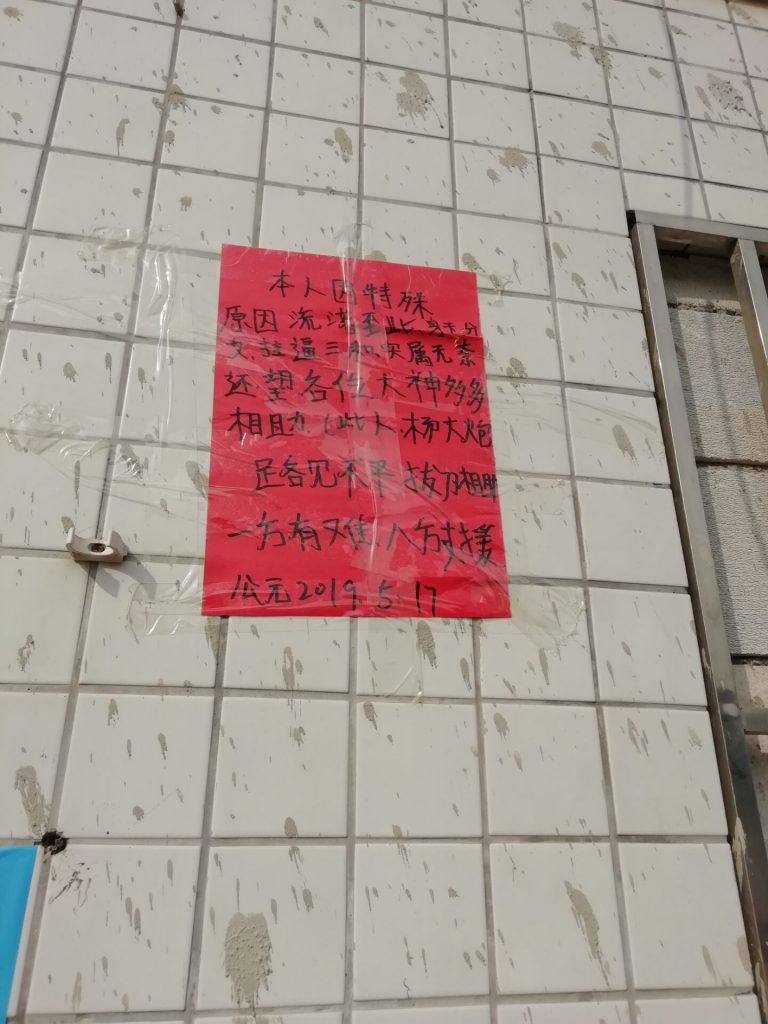 本人因特殊
原因流落至此、身无分
文挂逼三和实属无奈
还望各位大神多多
相助（此人、杨大炮
足各见不平拔刀相助
一方有难八方支援
公元2019.5.17